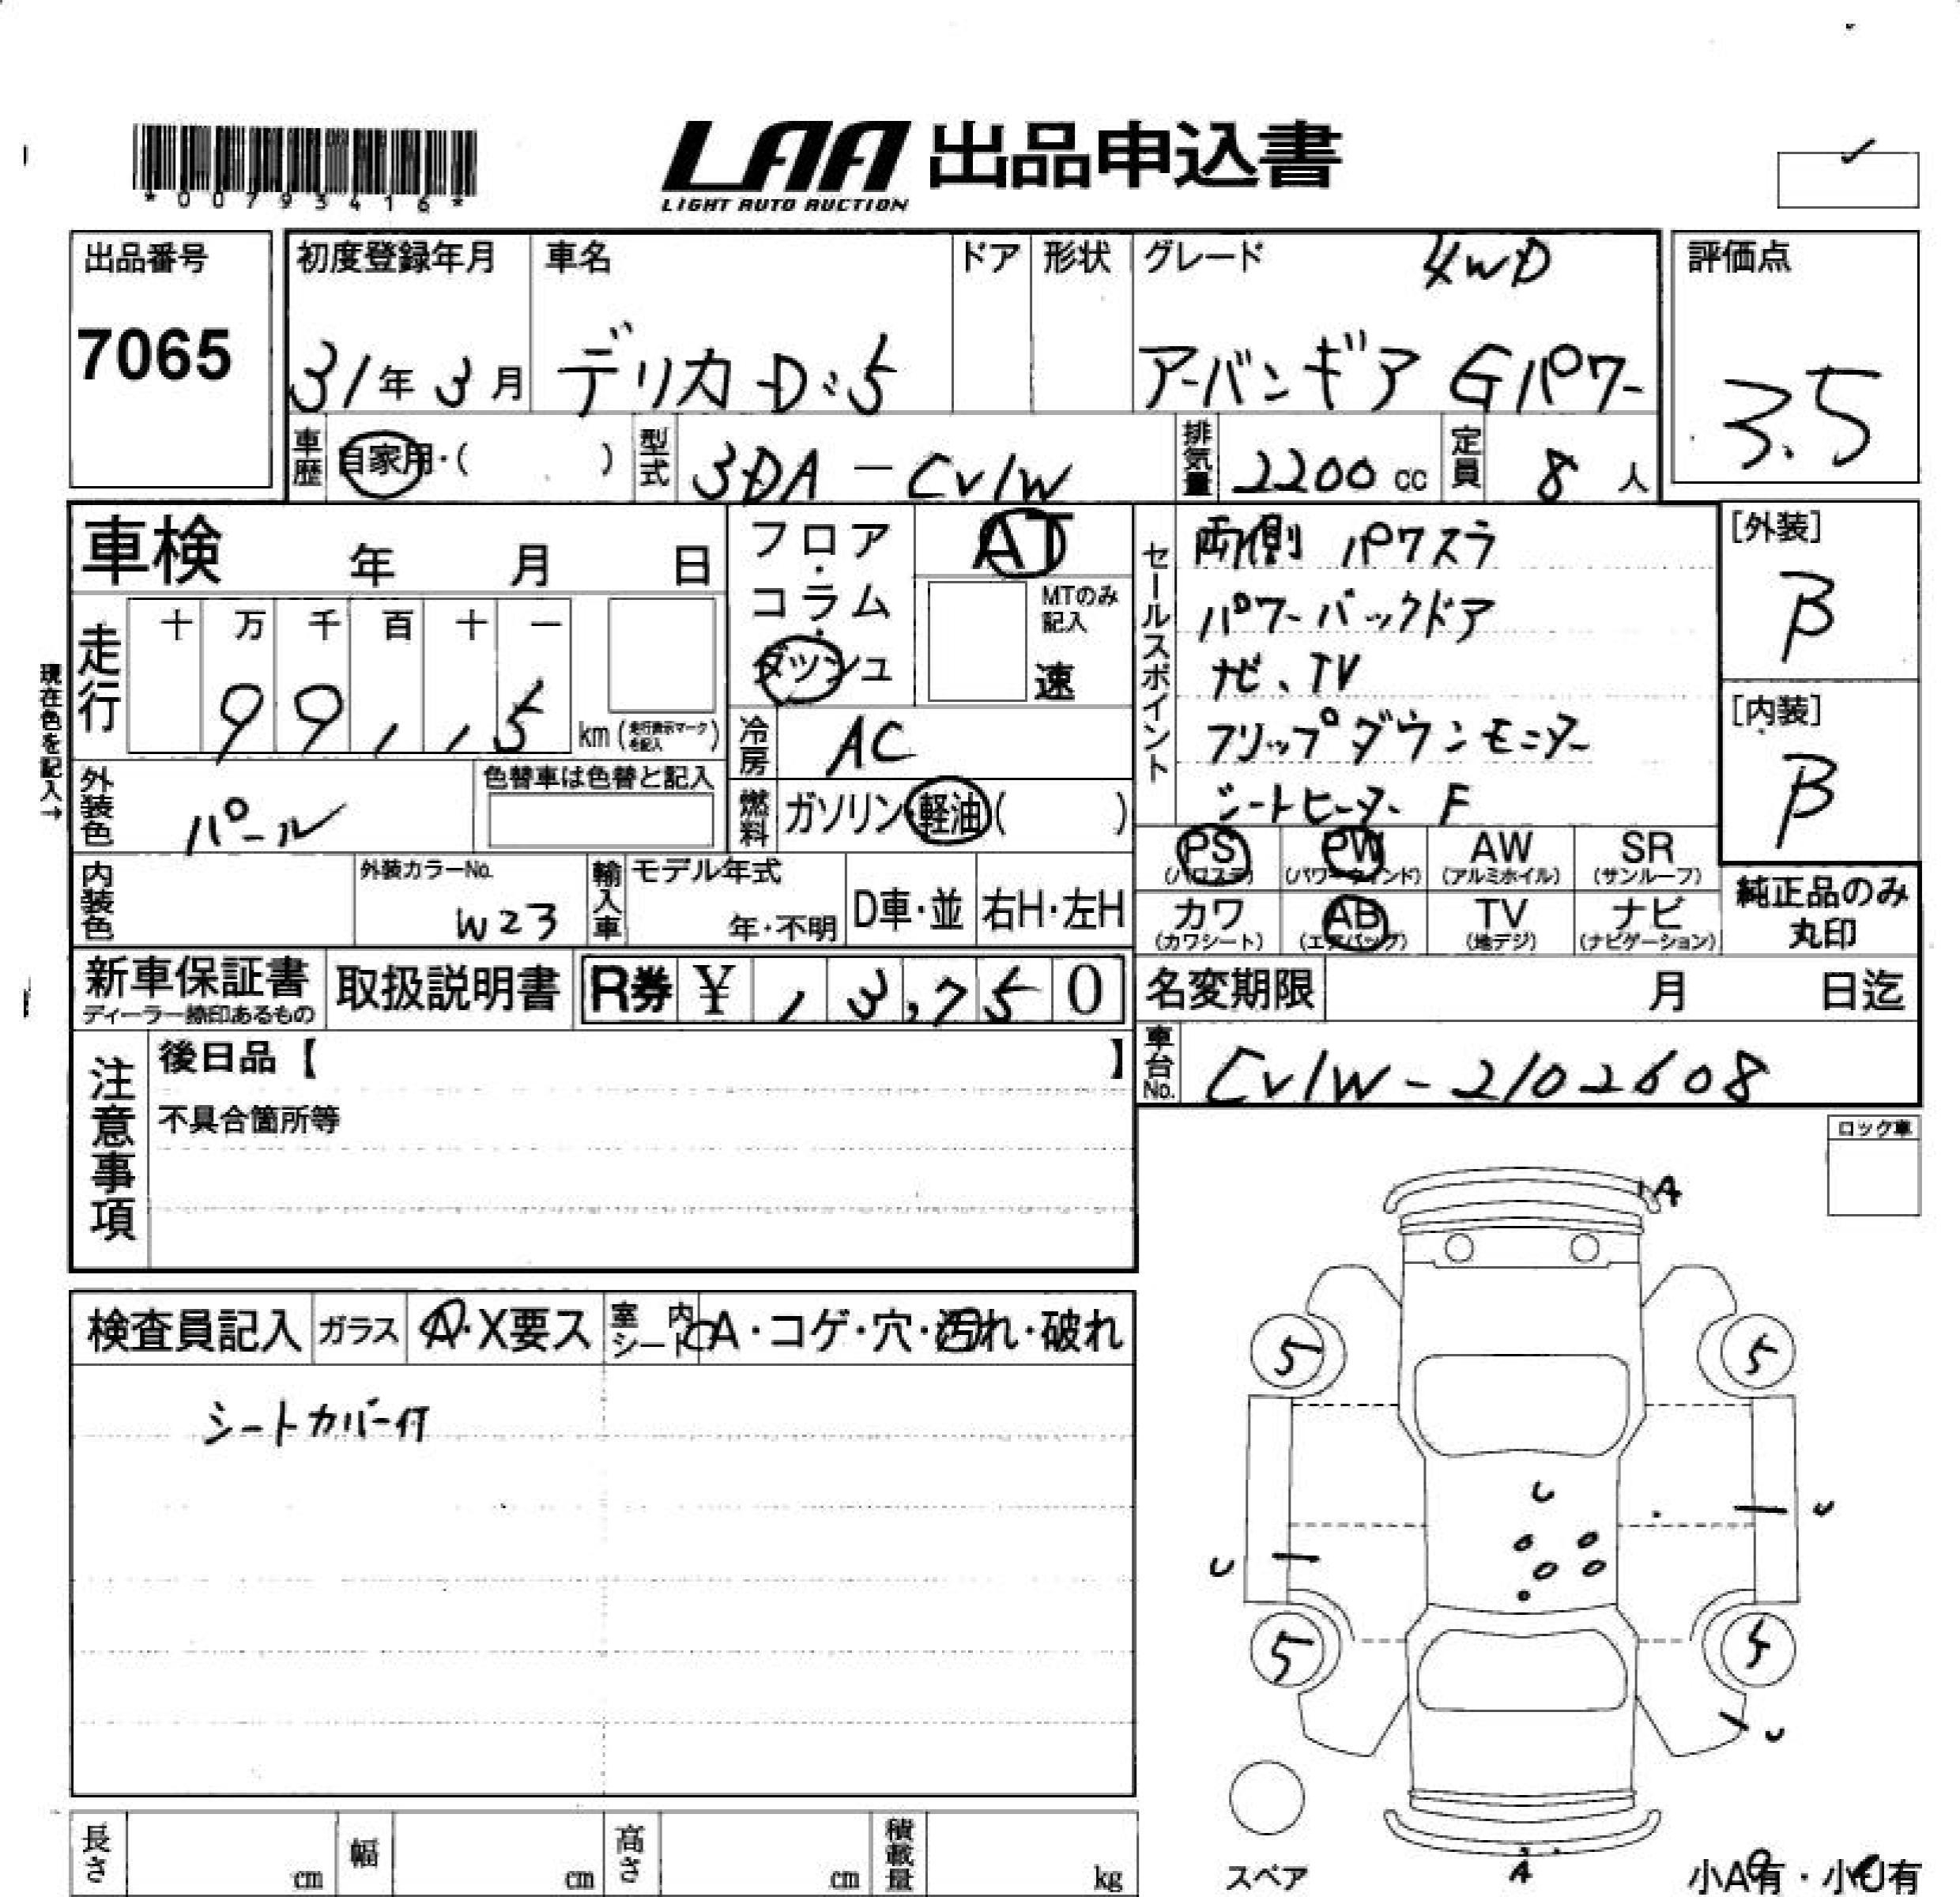 *00793416*
LAA 出品申込書
LIGHT AUTO AUCTION
出品番号
7065
初度登録年月
31年3月
車名
デリカD:5
ドア
形状
グレード
4WD
アーバンギア Gパワー
評価点
3.5
車歴
自家用・( )
型式
3DA-CV1W
排気量
2200 cc
定員
8 人
車検 年 月 日
フロア・コラム・ダッシュ
AT
MTのみ記入
速
現在色を記入→
走行
十 万 千 百 十 一
99,115
km (走行表示マークを記入)
冷房
AC
外装色
パール
色替車は色替と記入
燃料
ガソリン・軽油( )
内装色
外装カラーNo.
W23
輸入車
モデル年式
年・不明
D車・並
右H・左H
新車保証書
取扱説明書
R券 ¥ 13,750
セールスポイント
両側パワスラ
パワーバックドア
ナビ、TV
フリップダウンモニター
シートヒーター F
[外装]
B
[内装]
B
PS
(パワステ)
PW
(パワーウインド)
AW
(アルミホイル)
SR
(サンルーフ)
カワ
(カワシート)
AB
(エアバッグ)
TV
(地デジ)
ナビ
(ナビゲーション)
純正品のみ
丸印
名変期限 月 日迄
車台No.
CV1W-2102608
注意事項
後日品【 】
不具合箇所等
ロック車
検査員記入
ガラス
A・X要ス
室内シート
A・コゲ・穴・汚れ・破れ
シートカバー付
A
5
5
U
U
U
5
5
U
A
スペア
小A有・小U有
長さ cm
幅 cm
高さ cm
積載量 kg